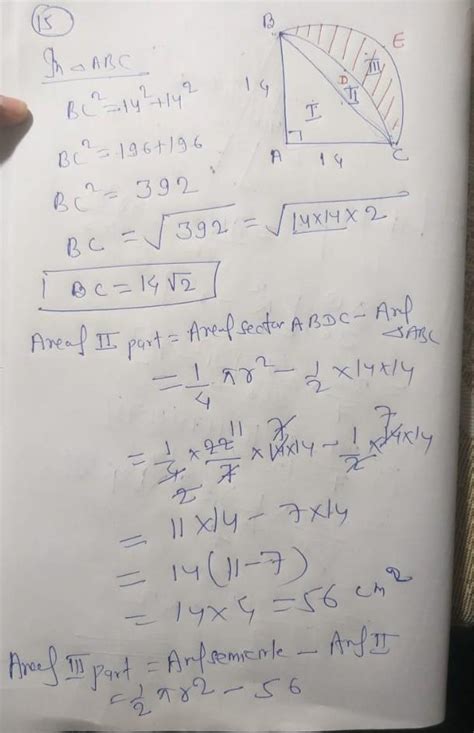 15
In △ABC
BC² = 14² + 14²
BC² = 196 + 196
BC² = 392
BC = √392 = √14×14×2
BC = 14√2
B
E
D
III
II
I
14
A
14
C
Area of II part = Area of sector ABDC - Arof △ABC
= 1/4 πr² - 1/2 × 14 × 14
= 1/4 × 22/7 × 14 × 14 - 1/2 × 14 × 14
11
7
7
2
= 11 × 14 - 7 × 14
= 14 (11 - 7)
= 14 × 4 = 56 cm²
Area of III part = Arof semicircle - Arof II
= 1/2 πr² - 56